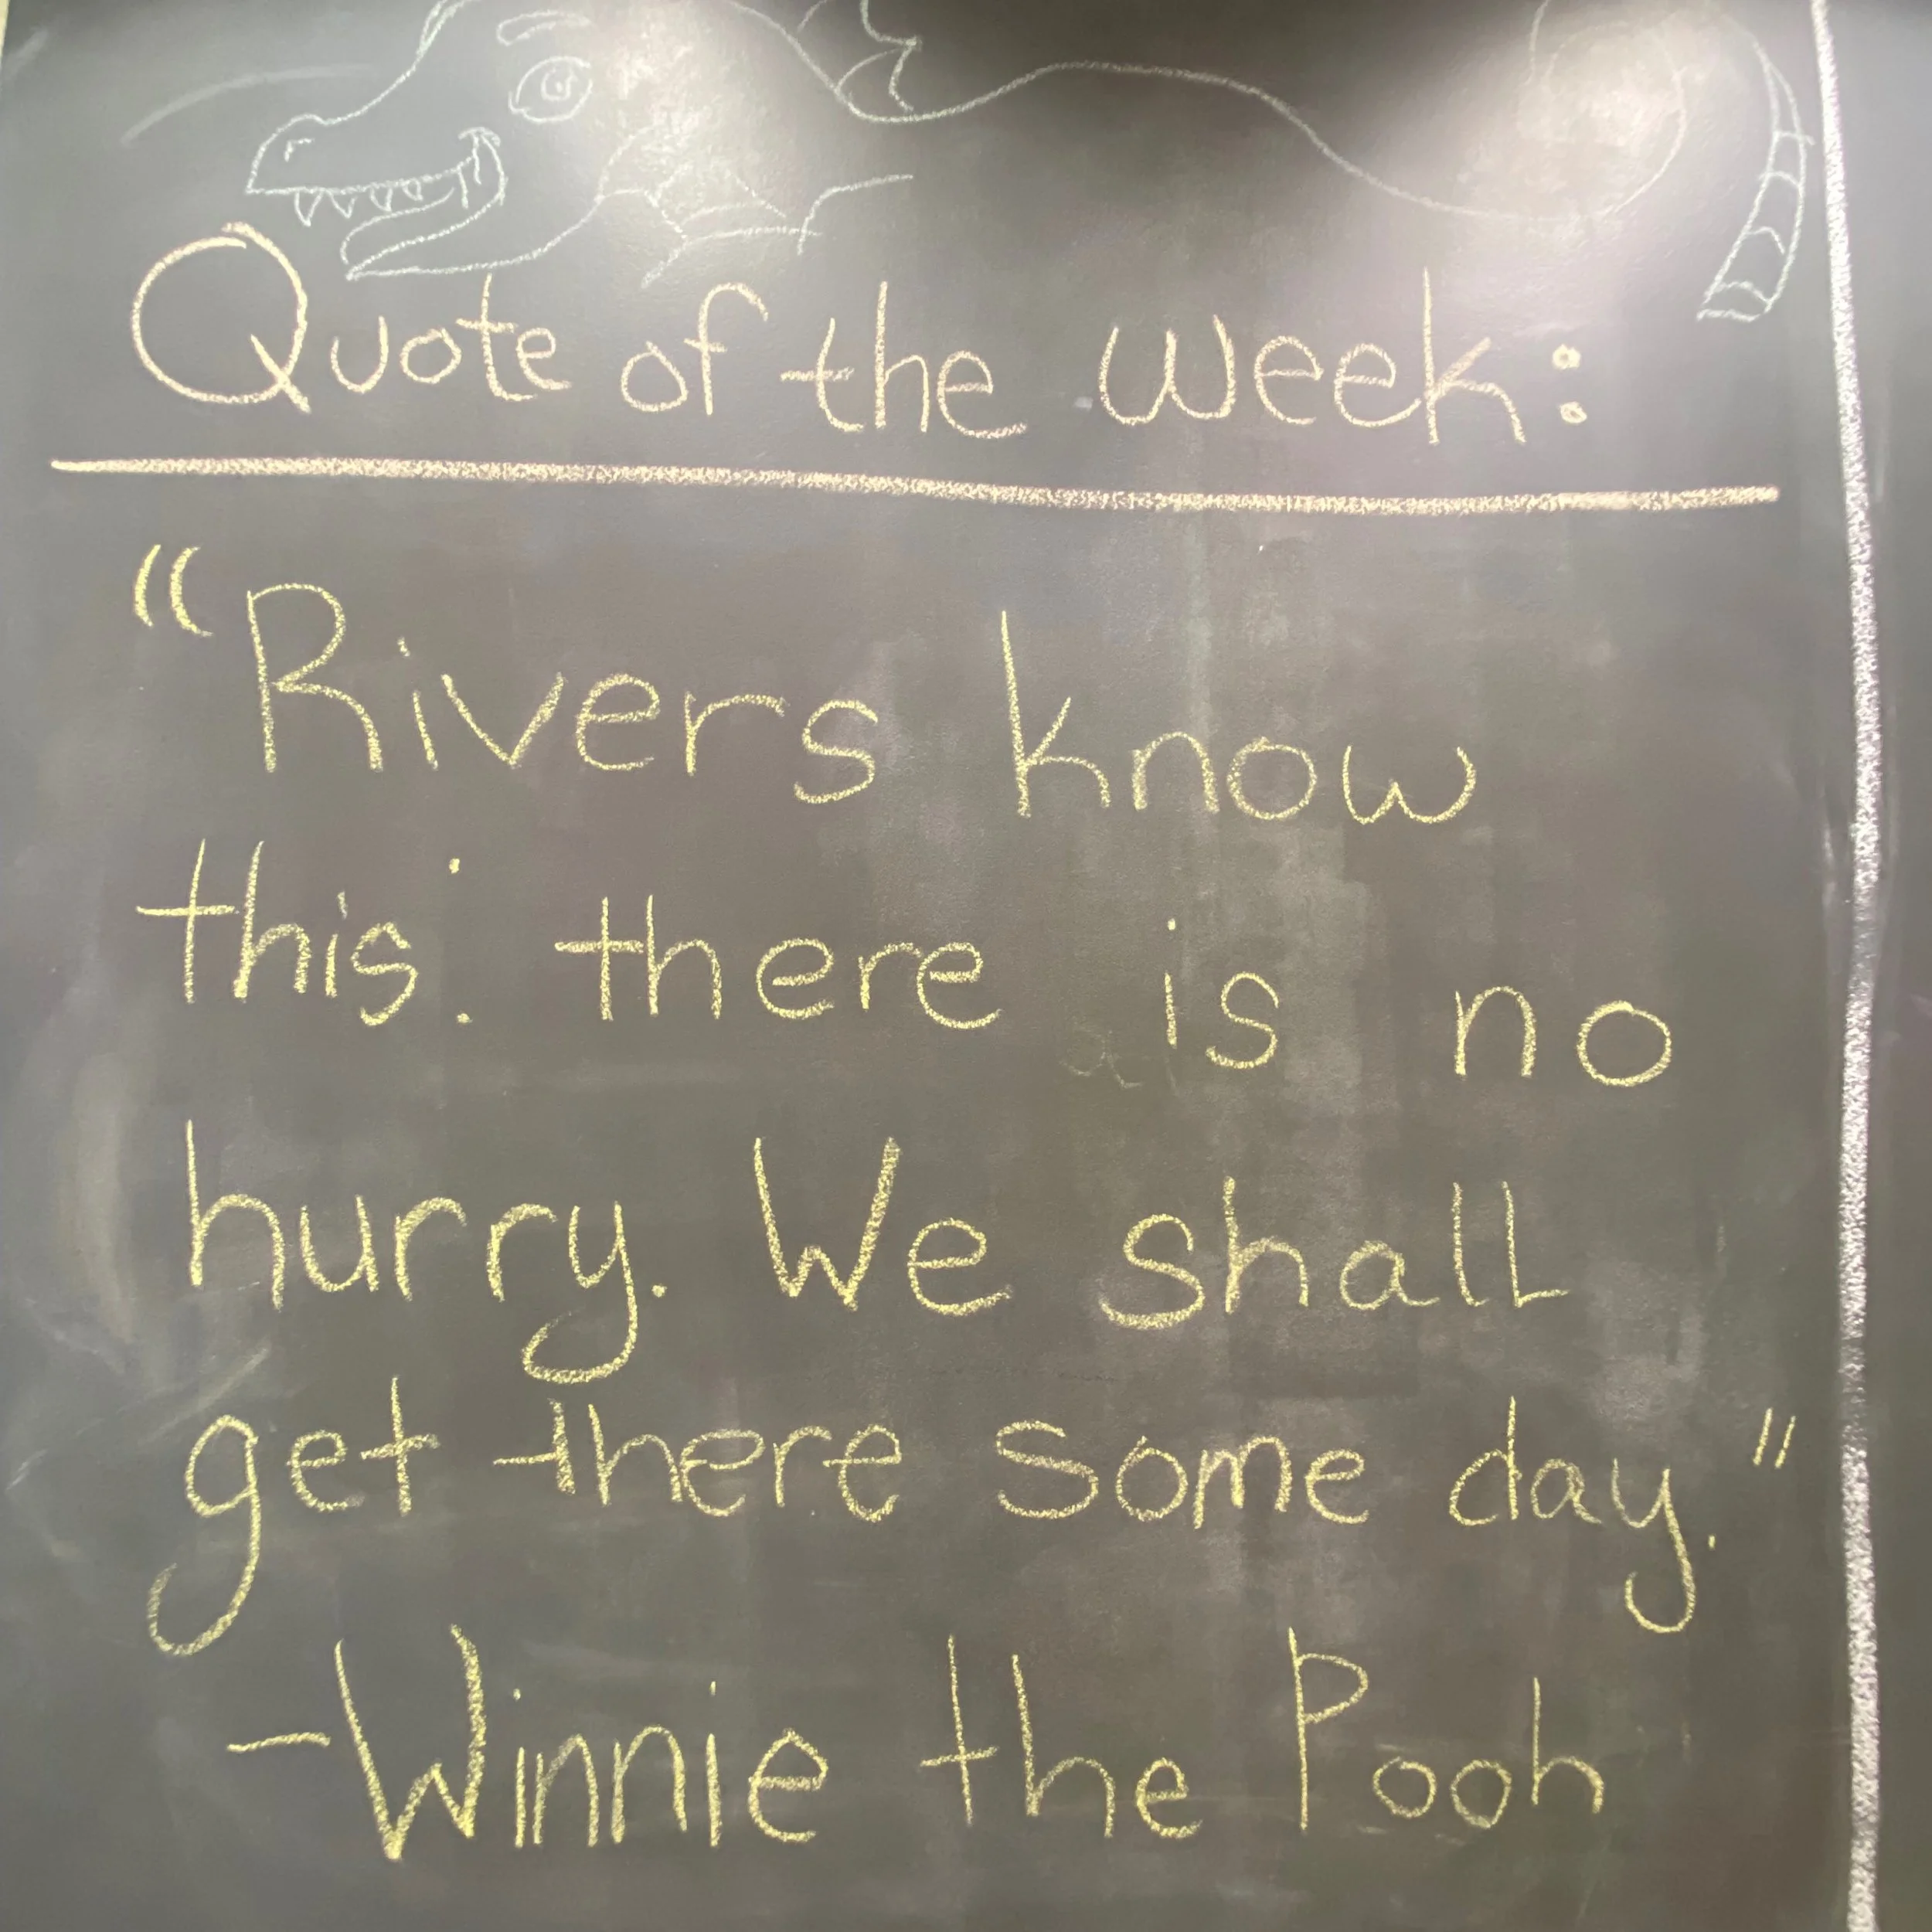 Quote of the week:
"Rivers know
this: there is no
hurry. We shall
get there some day."
-Winnie the Pooh